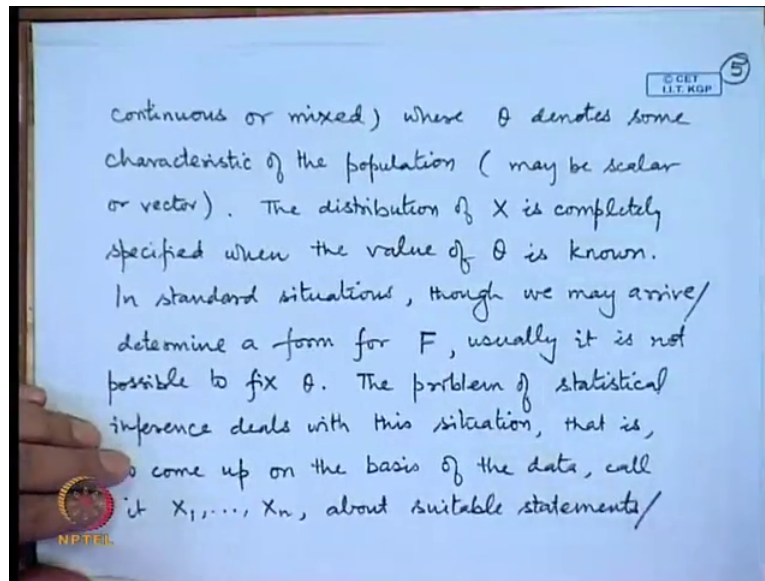 © CET
I.I.T. KGP
5
continuous or mixed) where θ denotes some
characteristic of the population ( may be scalar
or vector). The distribution of X is completely
specified when the value of θ is known.
In standard situations, though we may arrive/
determine a form for F, usually it is not
possible to fix θ. The problem of statistical
inference deals with this situation, that is,
come up on the basis of the data, call
it X₁,..., Xₙ, about suitable statements/
NPTEL